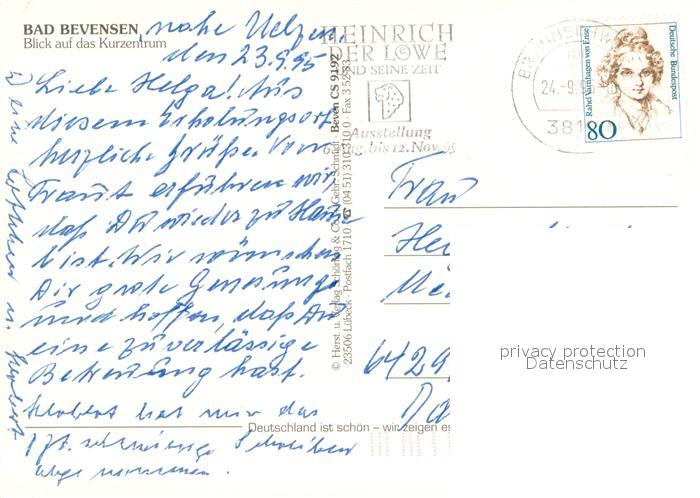 BAD BEVENSEN, nahe Uelzen,
Blick auf das Kurzentrum
den 23.9.95
Liebe Helga! Aus
diesem Erholungsort
herzliche Grüße. Von
Traut erfuhren wir,
daß Du wieder zu Hause
bist. Wir wünschen
Dir gute Genesung
und hoffen, daß Du
eine zuverlässige
Betreuung hast.
Herbert hat mir das
abgenommen.
Herbert
© Herst. u. Verlag Schöning & Co + Gebr. Schmidt
23506 Lübeck · Postfach 1710 · (04 51) 3 10 31 0 · Fax 3 52 83
Beven CS 9192
Deutschland ist schön – wir zeigen es
HEINRICH
DER LÖWE
UND SEINE ZEIT
Ausstellung
6. Aug. bis 12. Nov. 95
BRAUNSCHW
24.-9.
381
Rahel Varnhagen von Ense
Deutsche Bundespost
80
Frau
He
6429
Da
privacy protection
Datenschutz